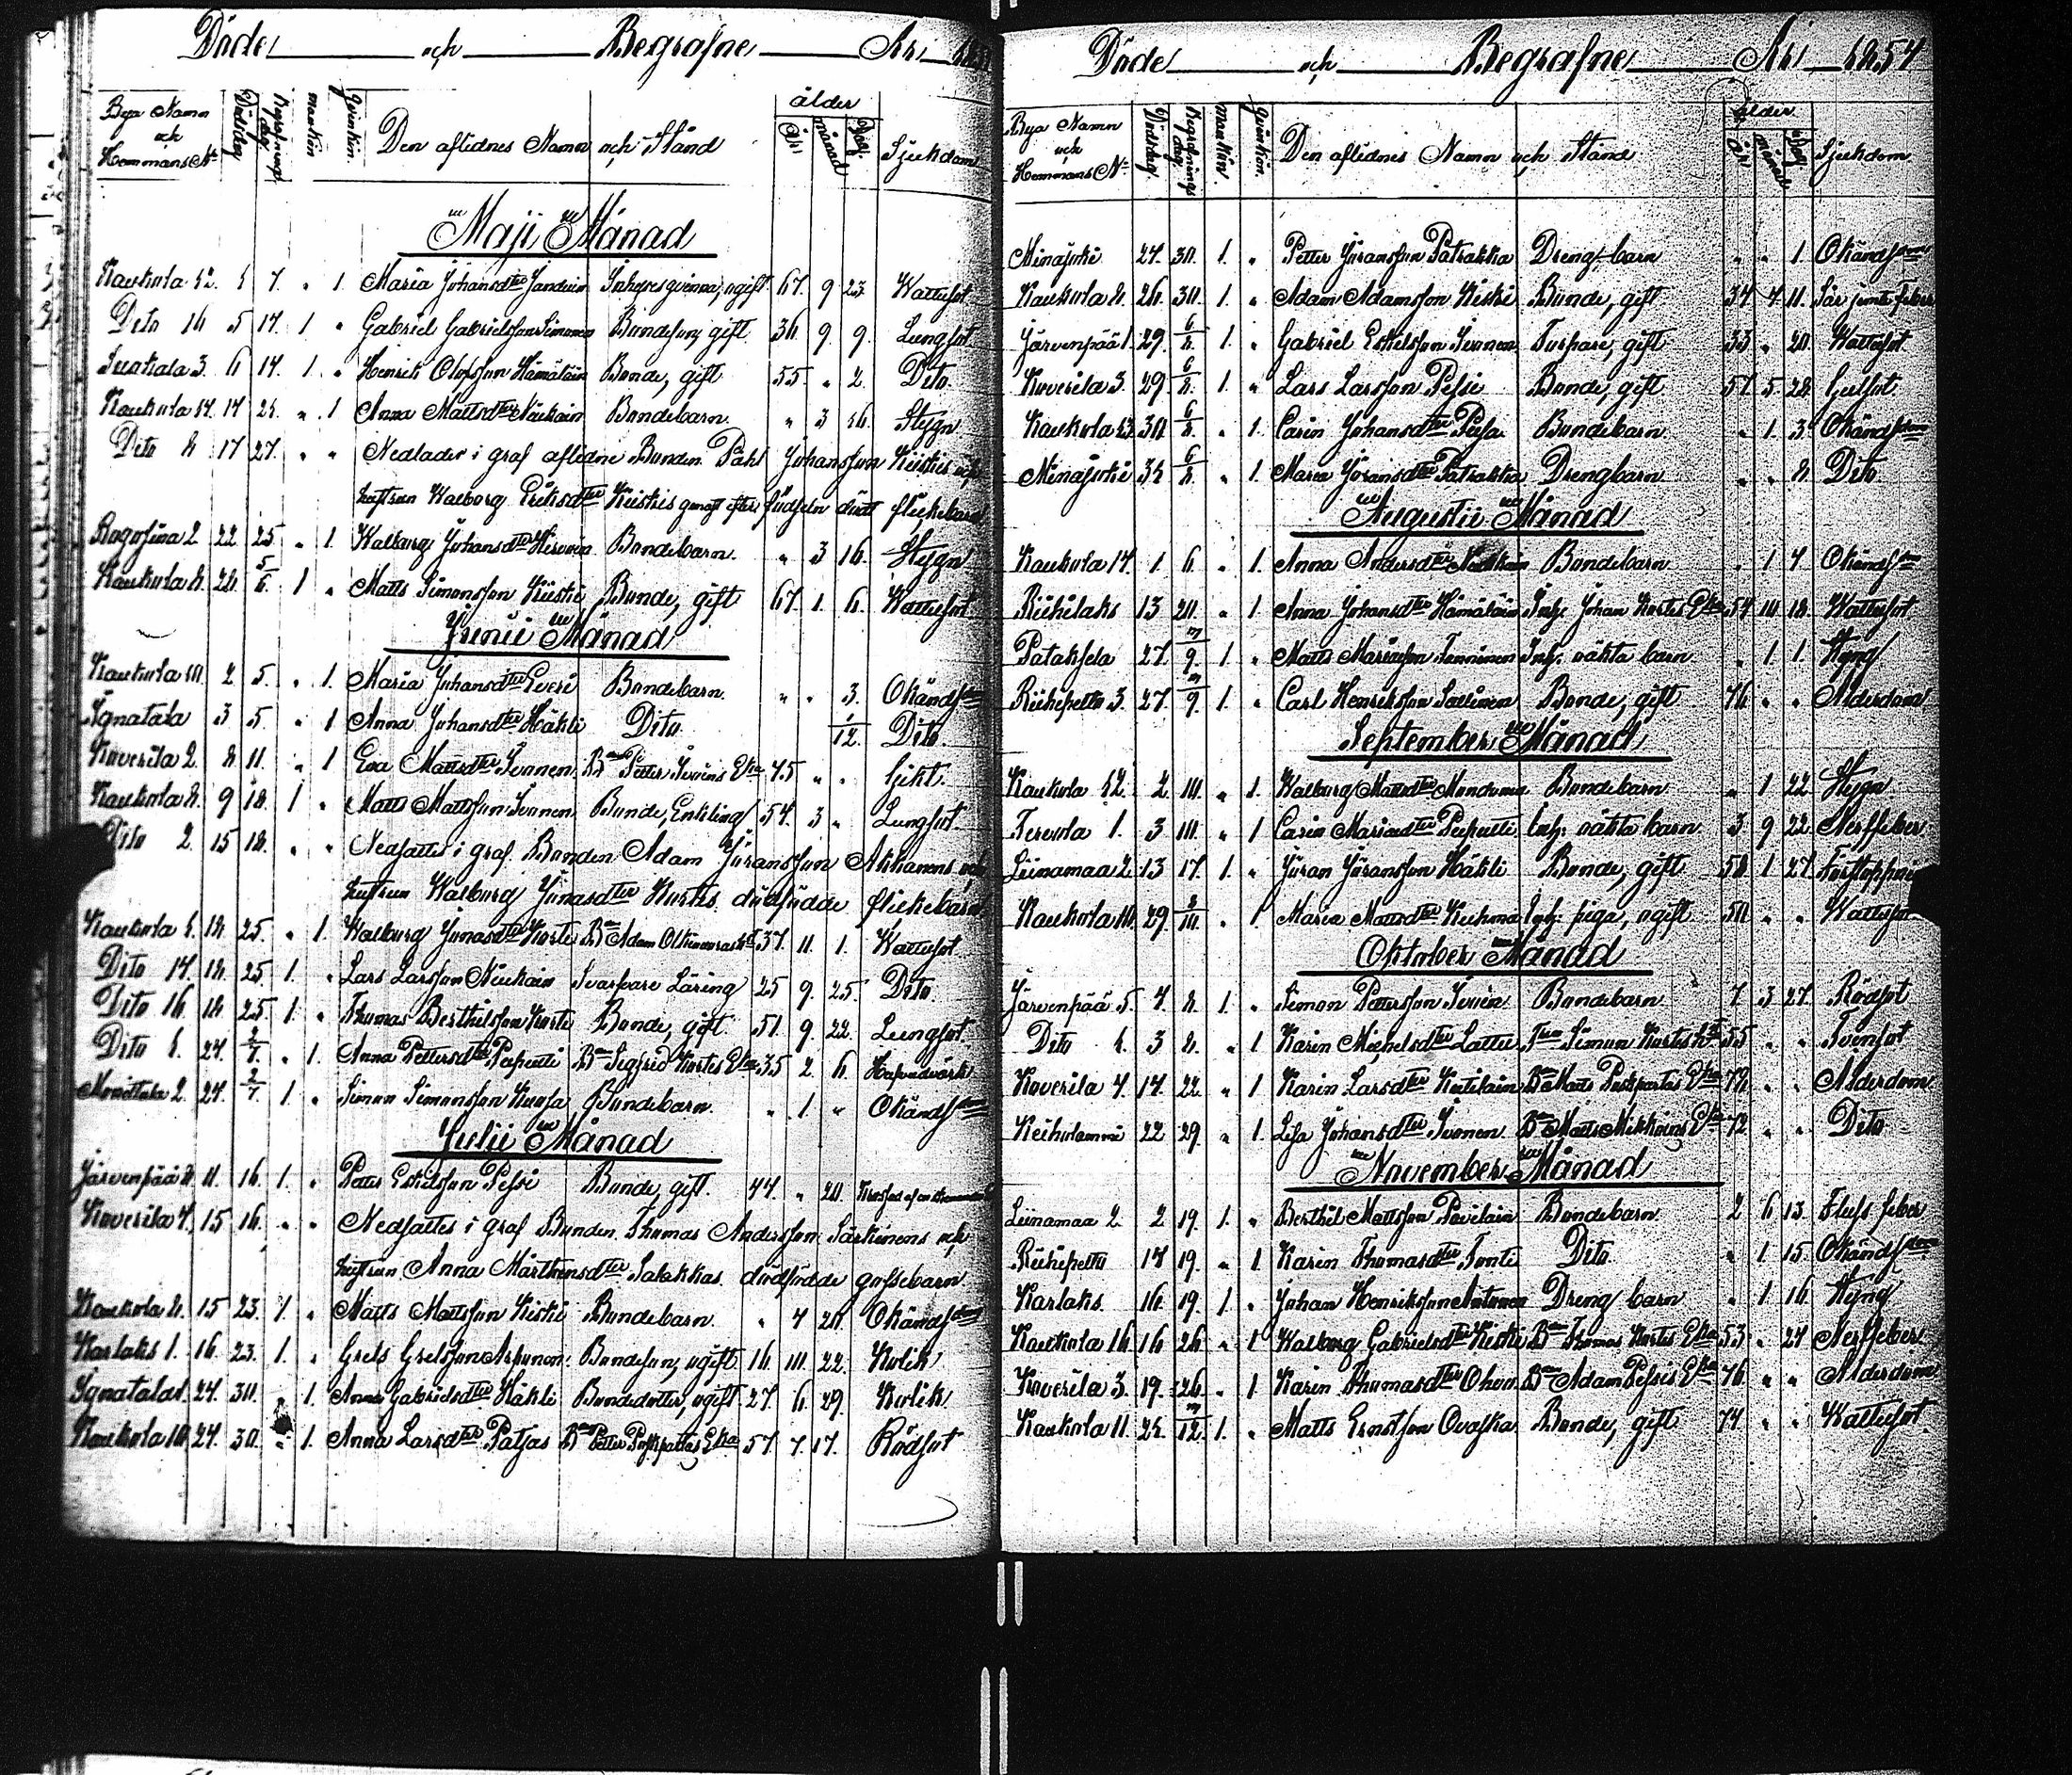 Döde och Begrafne År 1854
Bya Namn och Hemmans No Dödsdag Begrafnings dag mankön Qvinkön. Den aflidnes Namn och Stånd ålder År månad Dag. Sjukdom
Maji Månad
Kaukola 12. 1 7. " 1. Maria Johansdter Inhysesqvinna, ogift 67. 9 23. Wattusot
Dito 16 5 14. 1 " Gabriel Gabrielsson Simonen Bondeson, gift 36 9 9. Lungsot
3. 6 14. 1. " Henrich Olofsson Hämäläin Bonde, gift 55. " 2. Dito.
Kaukola 14. 14 21. " 1 Anna Mattsdter Bondebarn. " 3 16. Stygn
Dito 8 17 27. " " Nedlades i graf aflidne Bonden Påhl Johansson Kiiskis och
hustrun Walborg Eriksdter Kiiskis genast efter födseln död flickebarn
Rogosina 2 22 25 " 1. Walborg Johansdter Hirvoin Bondebarn. " 3 16. Stygn
Kaukola 8. 28. 5/6. 1 " Matts Simonsson Kiiski Bonde, gift 67. 1. 6. Wattusot
Junii Månad
Kaukola 10. 2 5. " 1. Maria Johansdter Everi Bondebarn. " " 3. Okänd sjukdom
Ignatala 3 5. " 1 Anna Johansdter Häkli Dito 1/12. Dito.
Koverila 2. 8 11. " 1 Eva Mattsdter Ivonen Bn Petter Ivoins Eka 75 " " Gikt.
Kaukola 8. 9 18. 1 " Matts Mattsson Ivonen Bonde, Enkling 54. 3 " Lungsot
Dito 2. 15 18. " " Nedsattes i graf Bonden Adam Göransson Akkanens och
hustrun Walborg Jonasdter Kortes dödfödde flickebarn
Kaukola 1. 18 25. " 1. Walborg Jonasdter Korte Bn Adam 37. 11. 1. Wattusot
Dito 14. 18. 25 1. " Lars Larsson Niukain Svarfvare Läring 25 9. 25. Dito
Dito 16 18 25. 1 " Thomas Berthelsson Korte Bonde, gift. 51. 9. 22. Lungsot.
Dito 1. 24. 2/7. " 1. Anna Pettersdter Pupputti Bn Sigfrid Kortes Eka 35 2. 6. Hufvudvärk
2. 24. 2/7. 1. " Simon Simonsson Kuusa Bondebarn. " 1. " Okänd sjukdom
Julii Månad
Järvenpää 8. 11. 16 1. " Petter Eskelsson Pessi Bonde, gift. 44. " 20.
Koverila 4. 15 16. " " Nedsattes i graf Bonden Thomas Andersson Särkinens och
hustrun Anna Mårtensdter Salakkas dödfödde gossebarn.
Kaukola 8. 15 23. 1. " Matts Mattsson Kiiski Bondebarn. " 4 20. Okänd sjukdom
Karlaks 1. 16. 23. 1. " Grels Grelsson Asunen Bondeson, ogift. 16. 10. 22. Kolik
Ignatala 1. 24. 30. " 1. Anna Gabrielsdter Häkli Bondedotter, ogift. 27. 6. 29. Kolik
Kaukola 10. 24. 30. " 1. Anna Larsdter Patjas Bn Petter Puskpartas Eka 57. 7. 17. Rödsot
Döde och Begrafne År 1854
Bya Namn och Hemmans No Dödsdag. Begrafnings dag mankön. Qvinkön. Den aflidnes Namn och Stånd ålder år månad Dag Sjukdom
Minajoki 27. 30. 1. " Petter Göransson Patrakka Dreng barn " " 1. Okänd sjukdom
Kaukola 8. 26. 30. 1. " Adam Adamsson Kiiski Bonde, gift 34 7 11. Sår jemte feber
Järvenpää 1. 29. 6/8. 1. " Gabriel Eskelsson Ivonen Torpare, gift 33 " 20. Wattusot
Koverila 3. 29. 6/8. 1. " Lars Larsson Pessi Bonde, gift 51. 5 28. Gulsot.
Kaukola 13. 30. 6/8. " 1. Carin Johansdter Bondebarn. " 1. 3. Okänd sjukdom
Minajoki 31. 6/8. " 1. Maria Göransdter Patrakka Drengbarn. " " 8. Dito
Augustii Månad
Kaukola 14. 1 6 " 1. Anna Andersdter Bondebarn " 1 4. Okänd sjukdom
Riihilaks 13 20. " 1. Anna Johansdter Hämäläin Inh. Johan Kortes Eka 54. 10. 18. Wattusot
Pataksela 27. /9. 1. " Matts Mariasson Tenninen Inh. oäkta barn " 1. 1. Kyng
Riihipelto 3. 27. /9. 1. " Carl Henriksson Sallinen Bonde, gift 76. " " Ålderdom
September Månad
Kaukola 12. 2. 10. " 1. Walborg Mattsdter Bondebarn " 1 22. Stygn
Tervola 1. 3 10. " 1 Carin Mariasdter Pupputti Inh. oäkta barn 3 9 22. Nerffeber
Liinamaa 2. 13 17. 1. " Göran Göransson Häkli Bonde, gift 58. 1 27.
Kaukola 10. 29. 8/10. " 1 Maria Mattsdter Inh: piga, ogift 50. " " Wattusot
Oktober Månad
Järvenpää 5. 4. 8. 1. " Simon Pettersson Ivoin Bondebarn 7 3 27. Rödsot
Dito 1. 3 8. " 1 Karin Michelsdter Lattu Simon Kortes 55 " " Tvinsot
Koverila 4. 14 22. " 1 Karin Larsdter Kutilain Bn Matts Puskpartas Eka 79. " " Ålderdom
22 29. " 1. Lisa Johansdter Ivonen Bn Matts Mikkoins Eka 72. " " Dito
November Månad
Liinamaa 2. 2 19. 1. " Berthil Mattsson Pavilain Bondebarn. 2 6 13. Fluss feber
Riihipelto 14 19. " 1 Karin Thomasdter Tonti Dito. " 1. 15. Okänd sjukdom
Karlaks. 16. 19. 1. " Johan Henriksson Antonen Dreng barn " 1 16 Kyng
Kaukola 16 16 26 " 1 Walborg Gabrielsdter Kiiski Bn Thomas Kortes Eka 53. " 24 Nerffeber.
Koverila 3. 19. 26. " 1 Karin Thomasdter Bn Adam Pessis Eka 76 " " Ålderdom
Kaukola 11. 21. /12. 1. " Matts Ernstson Ovaska Bonde, gift 74 " " Wattusot.